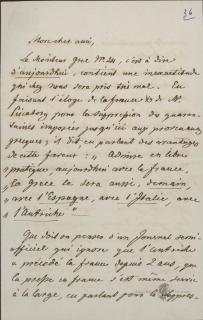 36
Mon cher ami,
Le Moniteur Grec No. 211, c'est à dire
d'aujourdhui, contient une inexactitude
qui chez nous sera prise très mal. En
faisant l'éloge de la france & de M.
Piscatory pour la suppression des quaran-
taines imposées jusqu'ici aux provenances
grecques, il dit, en parlant des avantages
de cette faveur: " Admise en libre
" pratique, aujourdhui avec la france,
" la Grèce le sera aussi, demain,
" avec l'Espagne, avec l'Italie, avec
" l'Autriche"
Que doit-on penser d'un Journal semi-
officiel qui ignore que l'Autriche
a précédé la france depuis 2 ans, que
la presse en france s'est même servie
à la large, en parlant pour la suppres-